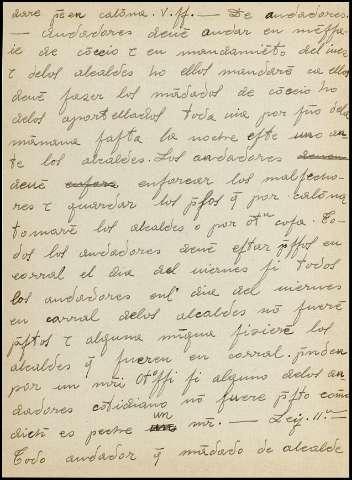 dare pēen calōna. V. ff. — De andadores.
— Andadores deuē andar en mēssa
ie de cōceio τ en mandamiēto del iuez
τ delos alcaldes ho ellos mandarē ca ellos
deuē fazer los mādados de cōceio ho
delos aportellados toda uia por pūo dela
mānana fasta la noche este uno an-
te los alcaldes. Los andadores deuen
deuē enforcar los malfecho-
res τ guardar los p̄sos q̄ por calōna
tomarē los alcaldes o por ot̄n cosa. To-
dos los andadores deuē estar p̄stos en
corral el dia del uiernes si todos
los andadores enl' dia del uiernes
en corral delos alcaldes nō fuerē
p̄stos τ alguna mīgua fizierē los
alcaldes q̄ fueren en corral. p̄nden
por un mr̄i otossi si alguno delos an-
dadores cotidiano nō fuere p̄sto como
dicħ es peche un mr. — Ley. II.ᵃ —
Todo andador q̄ mādado de alcalde